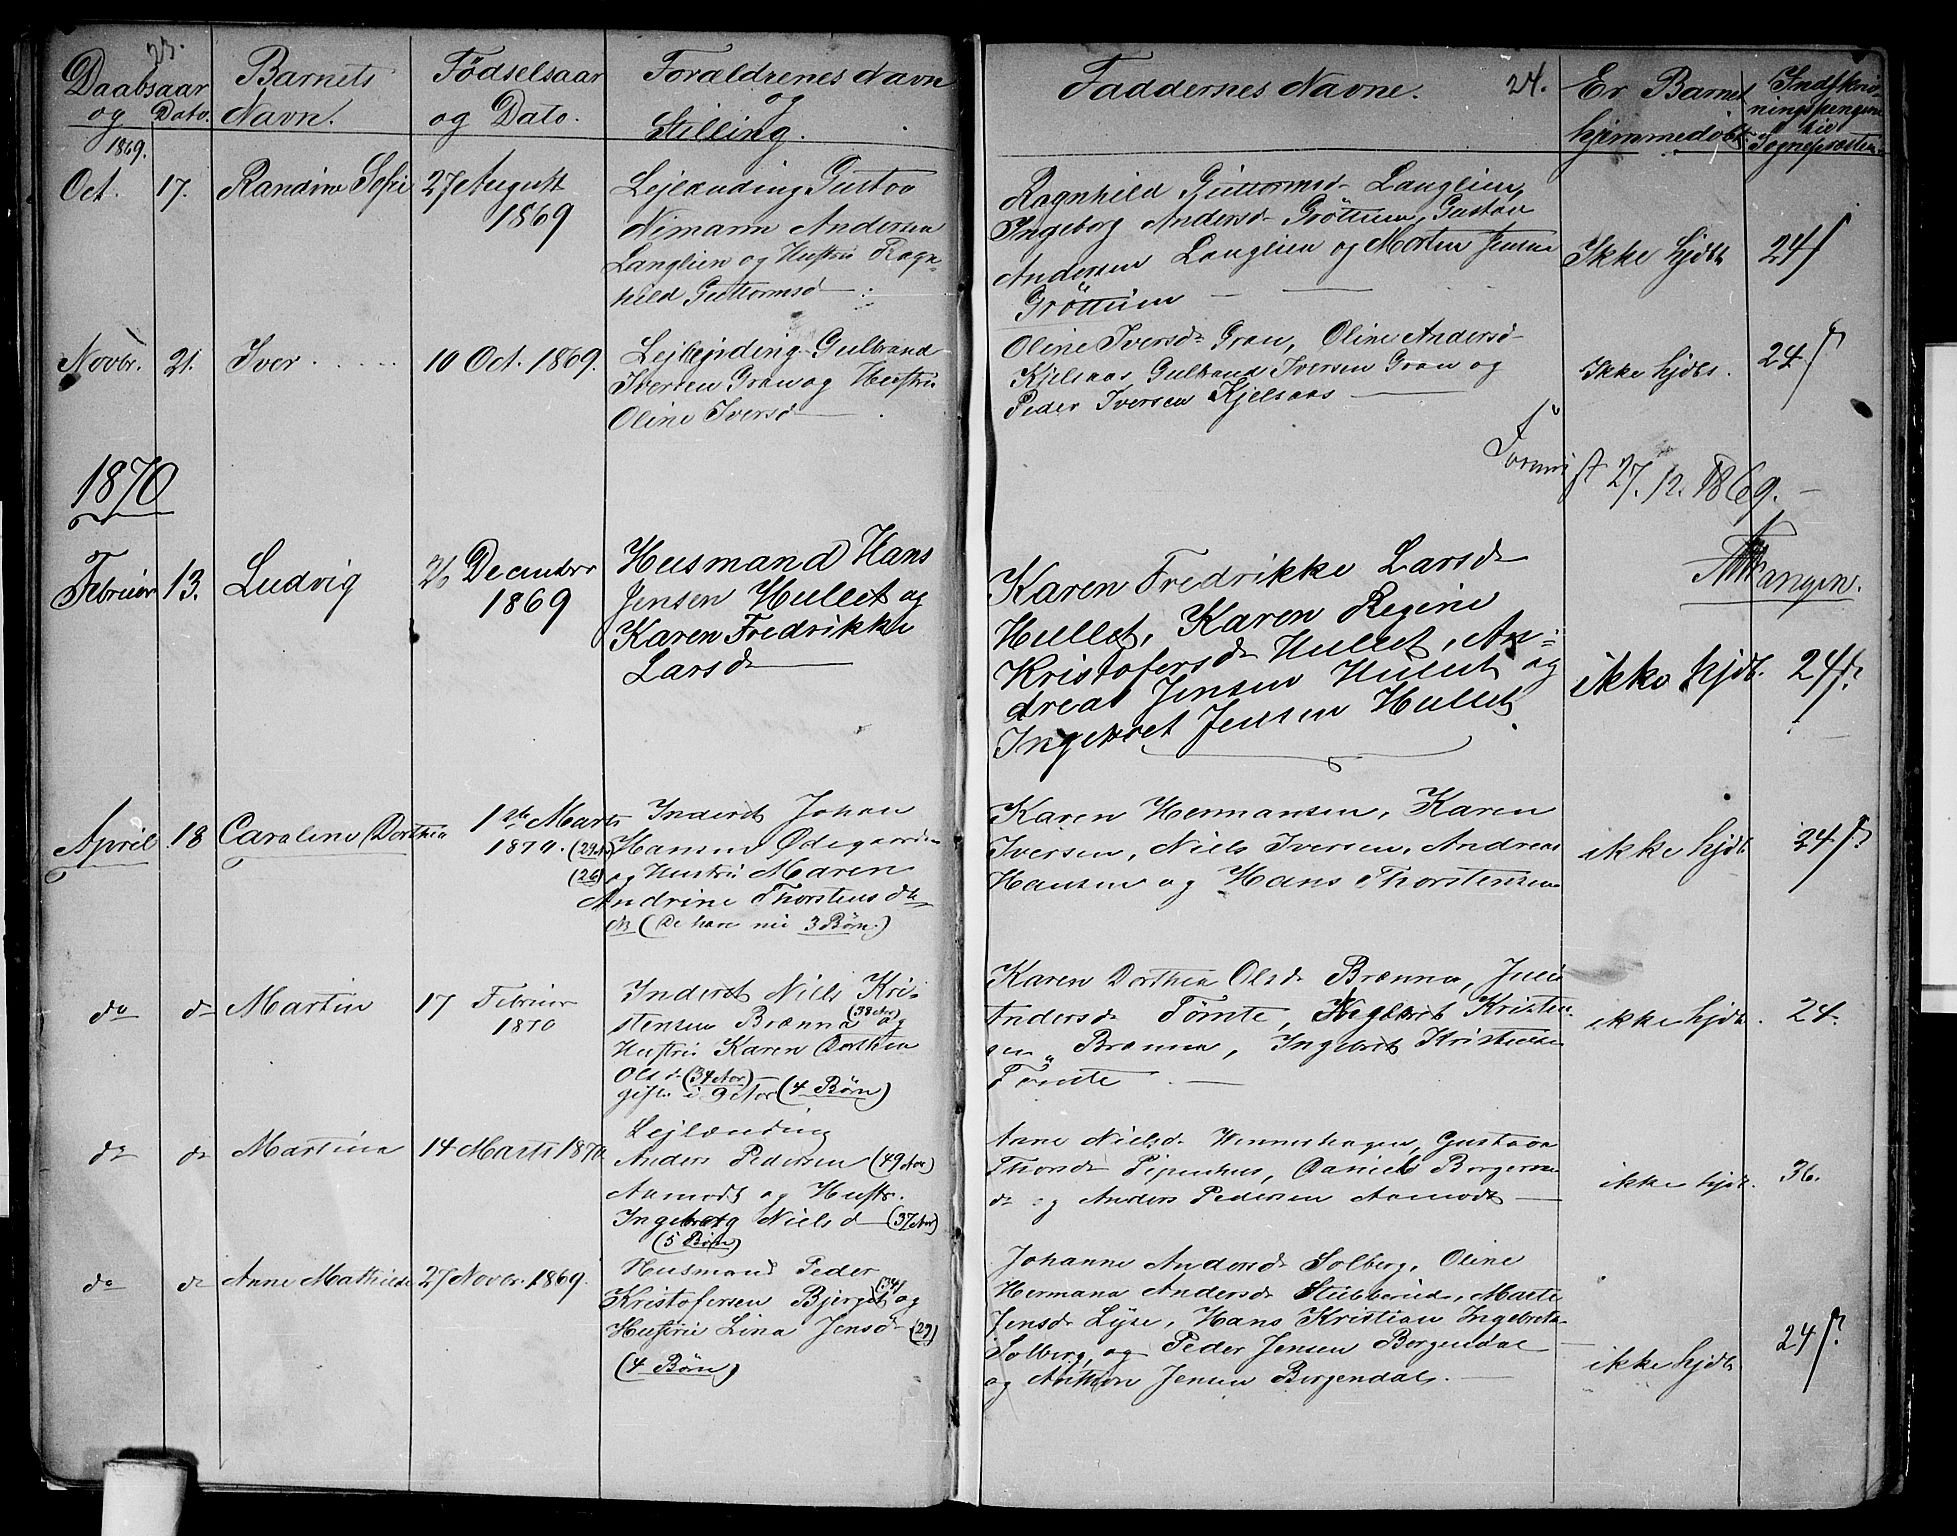 23.
Daabsaar
og Dato.
Barnets
Navn.
Fødselsaar
og Dato.
Forældrenes Navn
og
Stilling.
1869.
Oct. 17. Randine Sofie 27 August
1869
Lejlænding Gustav
Nimann Andersen
Langlien og Hustru Ragn-
hild Guttormsd
Novbr. 21. Iver 10 Oct. 1869.
Lejlending Gulbrand
Iversen Gran og Hustru
Oline Iversd
1870
Februar 13. Ludvig 26 December
1869
Husmand Hans
Jensen Hullet og
Karen Fredrikke
Larsd
April 18 Caroline Dorthea 1ste Marts
1870.
Inderst Johan
(29 Ar) Hansen Ødegaarden
(26) og Hustru Maren
Andrine Thorstensdtr
NB (De have nu 3 Børn.)
do d Martin 17 Februar
1870
Inderst Niels Kri-
stensen Brænna (38 Ar) og
Hustru Karen Dorthea
Olsd (34 Ar)
gifte i 9 Aar (4 Børn)
do d Martina 14 Marts 1870
Lejlænding
Anders Pedersen (49 Aar)
Aamodt og Hustr.
Ingeborg Nielsd (37 Aar)
(5 Børn)
do d Anne Mathilde 27 Novbr. 1869.
Husmand Peder
Kristofersen Bjerget (34) og
Hustrue Lina Jensd (29)
(4 Børn)
Faddernes Navne. 24.
Er Barnet
hjemmedøbt
Indskriv-
ningspengene
til
Sognepresten
Ragnhild Guttormsd Langlien,
Ingeborg Andersd Grøttum, Gustav
Andersen Langlien og Morten Jensen
Grøttum
Ikke hjdbt 24 s
Oline Iversd Gran, Oline Andersd
Kjelsaas, Gulbrand Iversen Gran og
Peder Iversen Kjelsaas
Ikke hjdbt. 24 s
27.12.1869.
Karen Fredrikke Larsd
Hullet, Karen Regine
Kristofersd Hullet, An-
dreas Jensen Hullet og
Ingebret Jensen Hullet
ikke hjdb. 24 s.
Karen Hermansen, Karen
Iversen, Niels Iversen, Andreas
Hansen og Hans Thorstensen
ikke hjdb 24 s
Karen Dorthea Olsd Brænna, Julie
Andersd Tømte, Ingebret Kristen-
sen Brænna, Ingebret Kristensen
Tømte
ikke hjdb. 24.
Anne Nielsd Wennershagen, Gustava
Thorsd Pipenhus, Daniel Borgersen
do og Anders Pedersen Aamodt
ikke hjdb. 36.
Johanne Andersd Solberg, Oline
Hermana Andersd Stubberud, Marte
Jensd Lyse, Hans Kristian Ingebrets
Solberg, og Peder Jensen Borgendal
og Anthon Jensen Borgendal.
ikke hjdb 24 s.